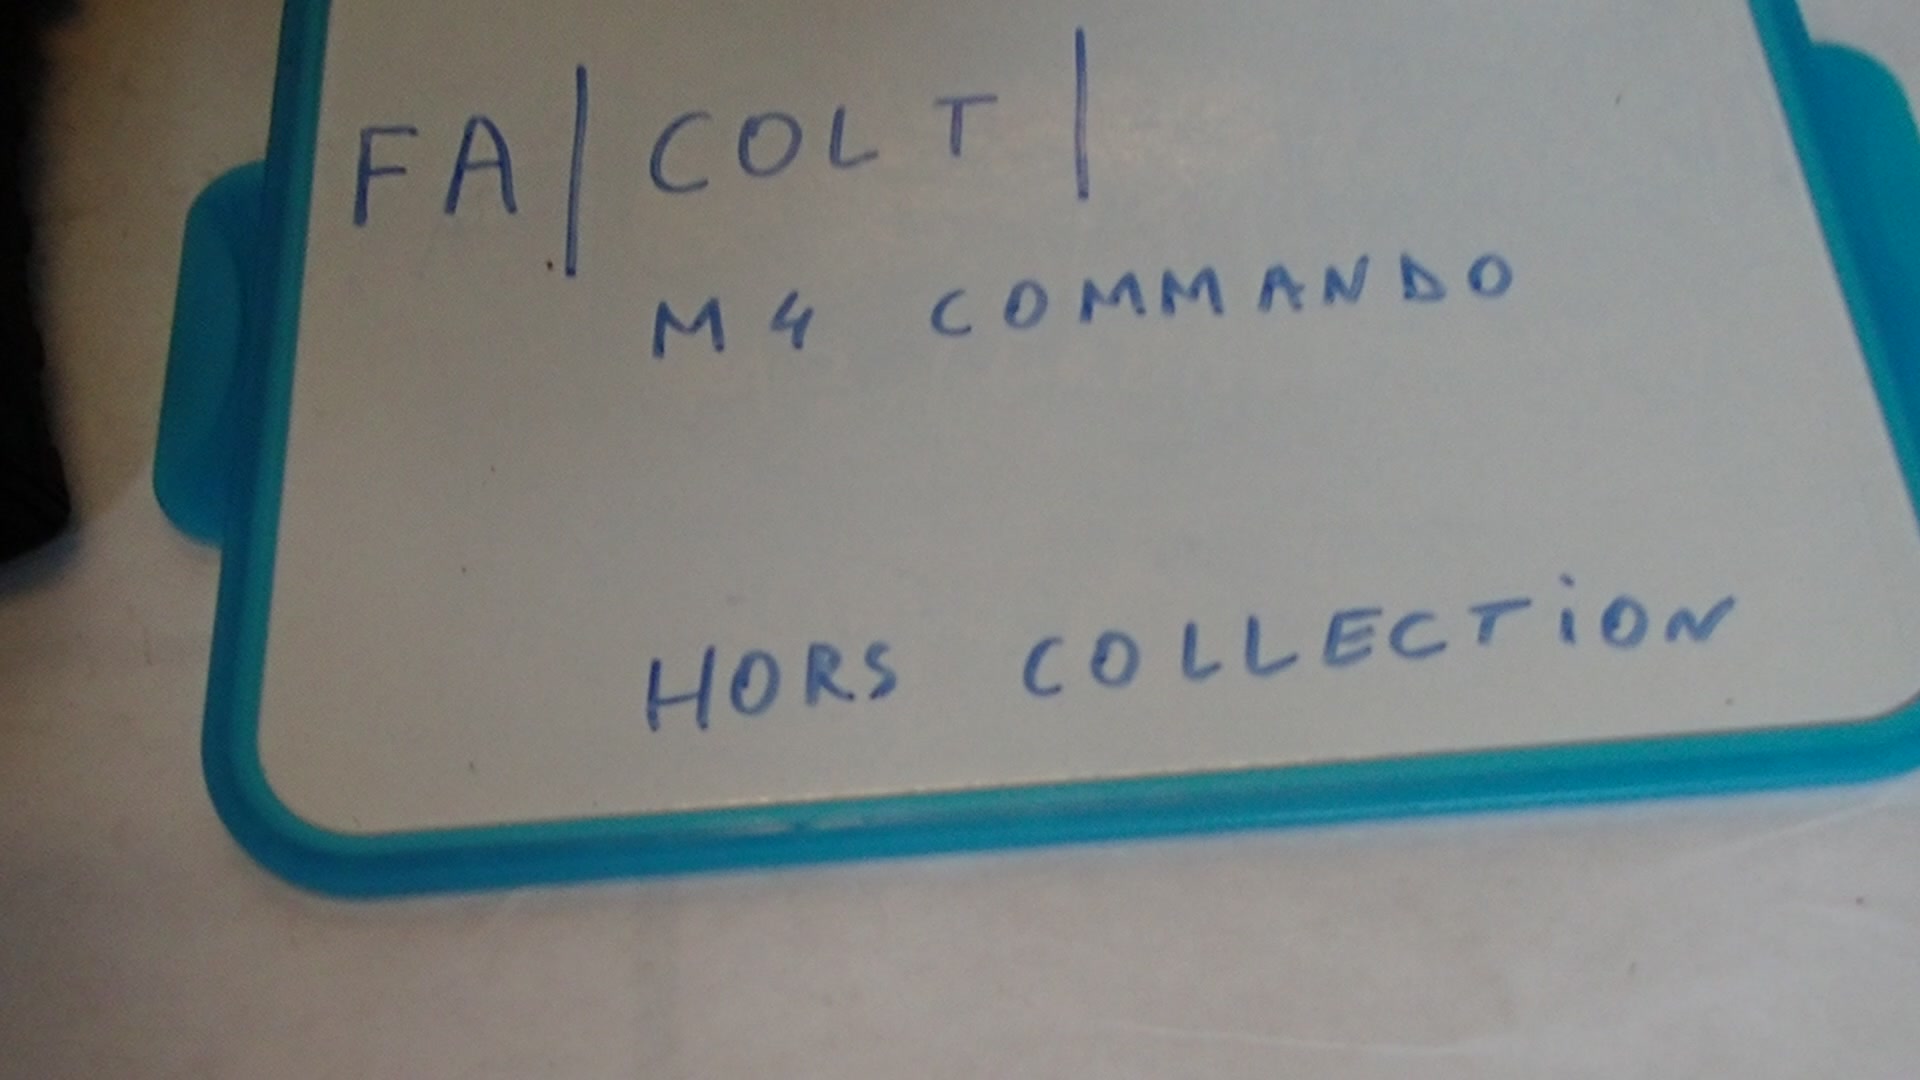 FA | COLT |
M4 COMMANDO
HORS COLLECTiON